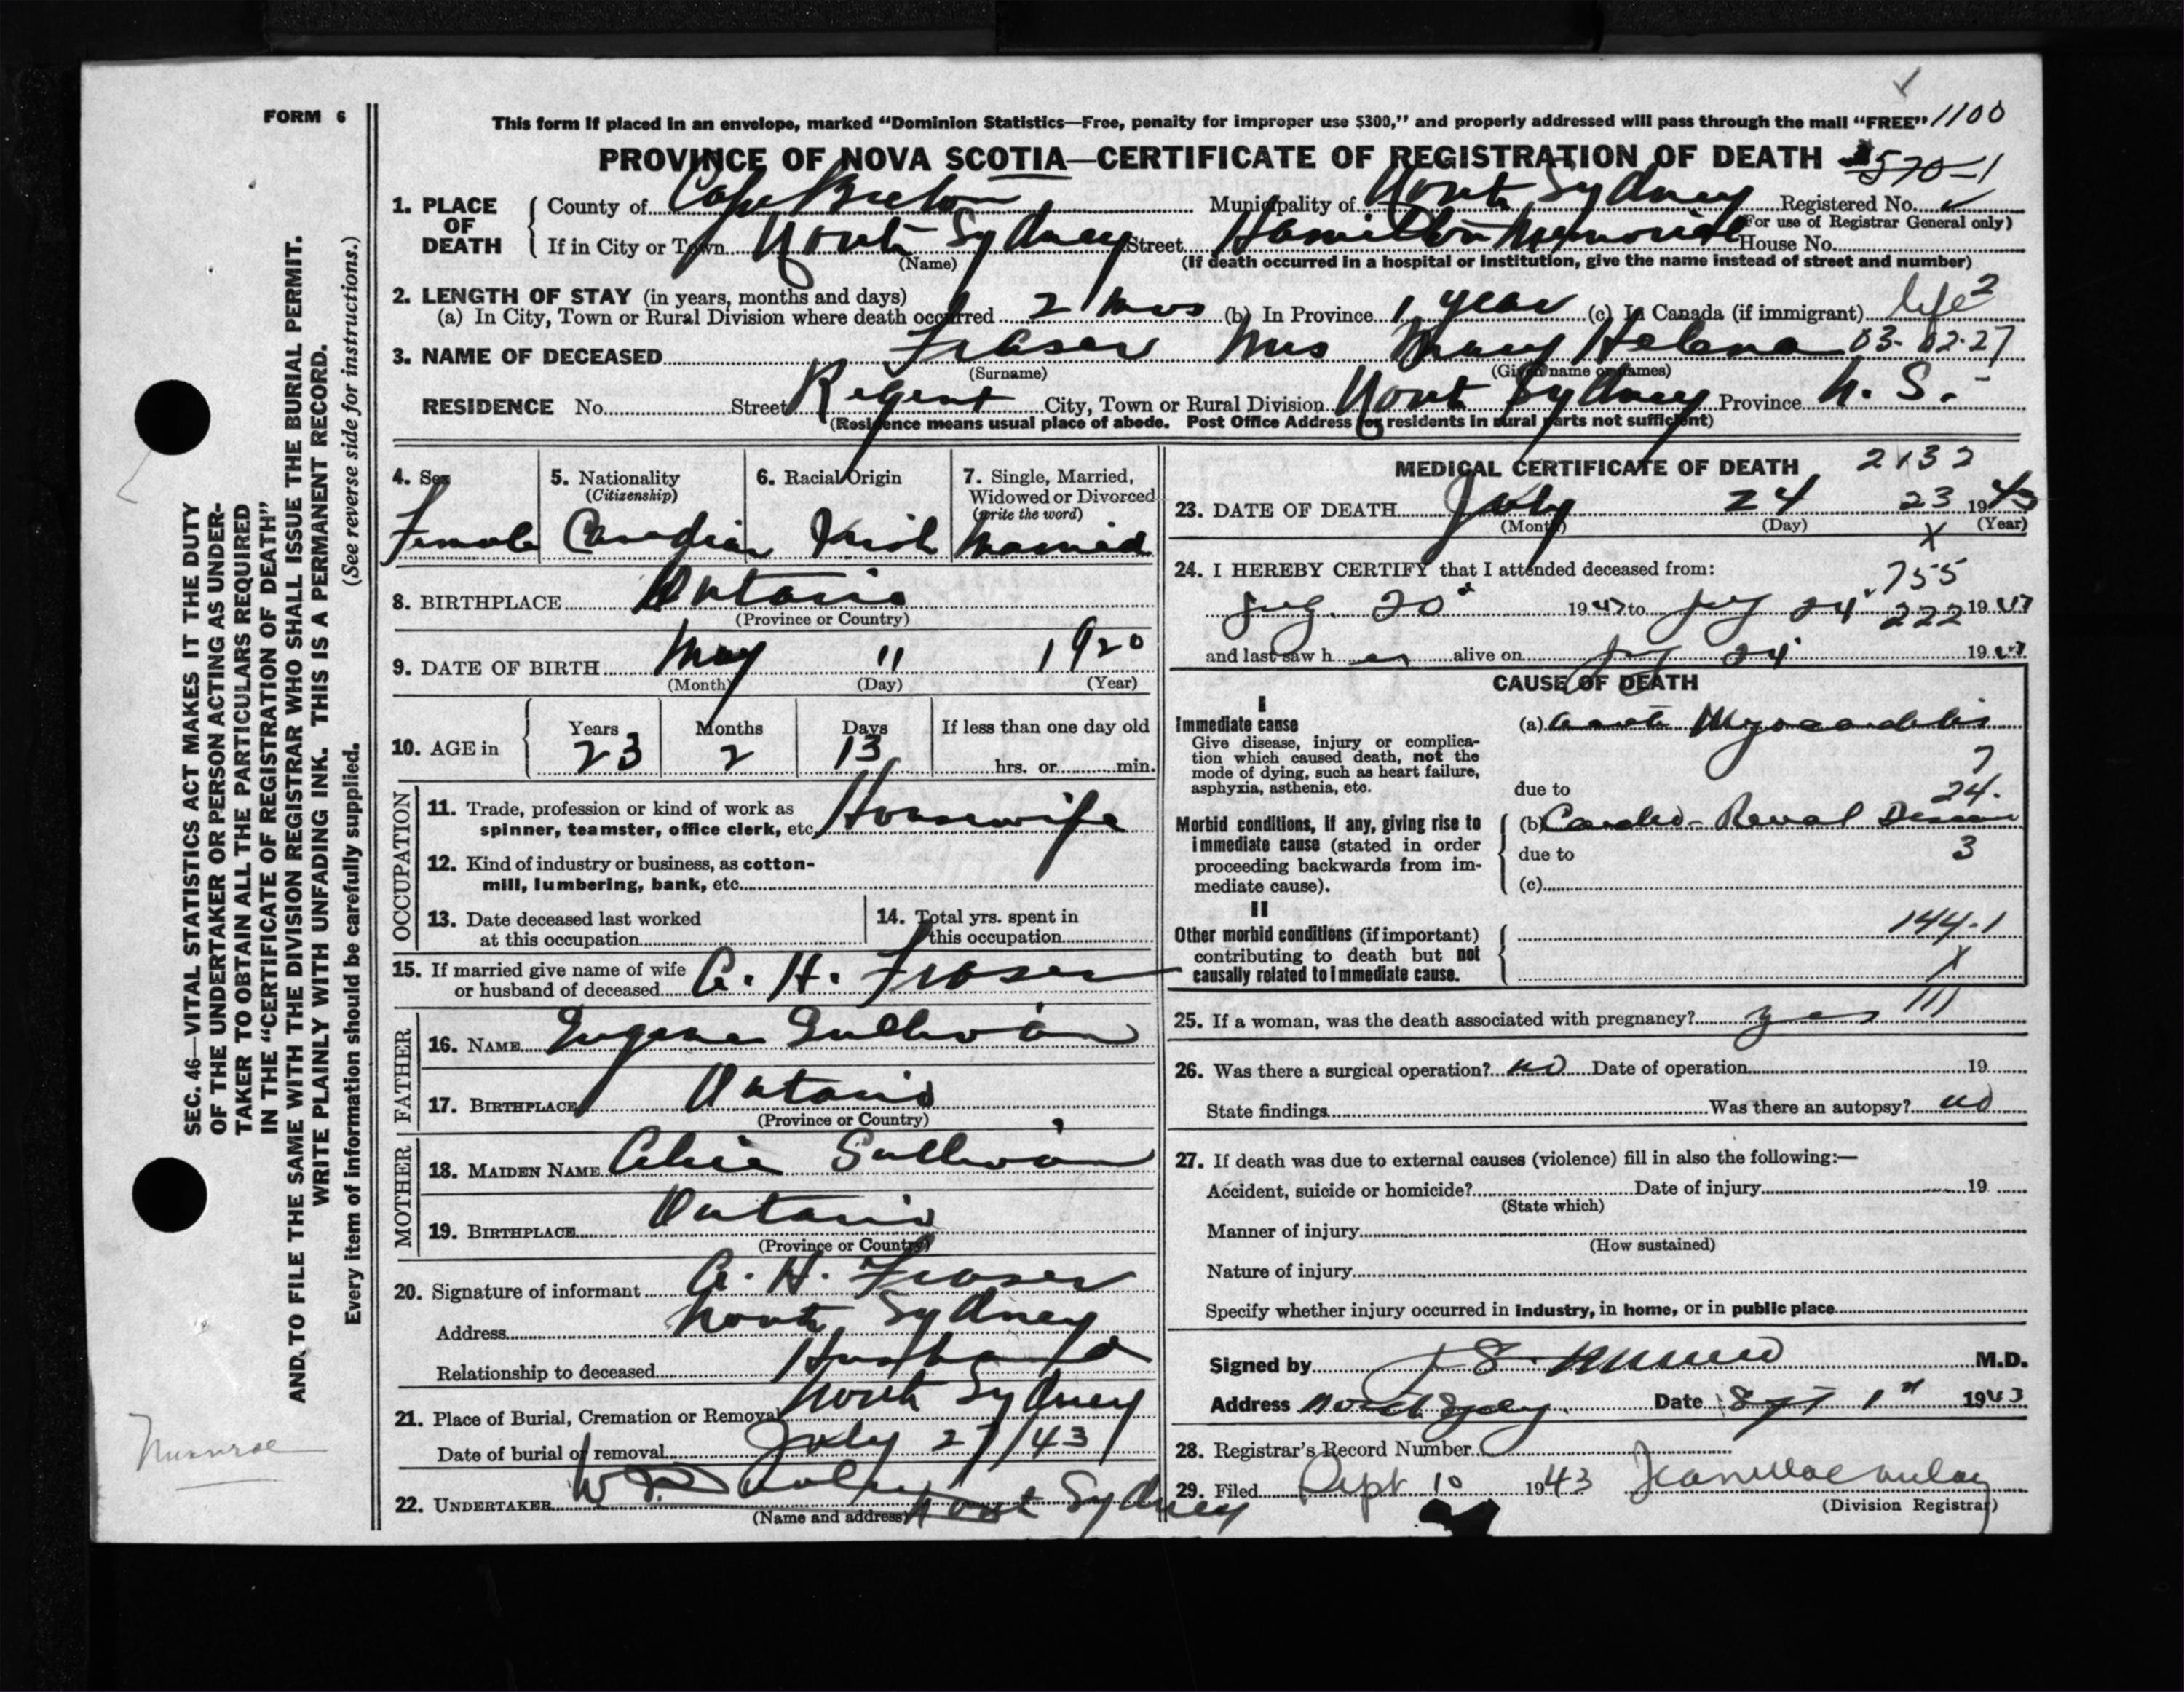 FORM 6
This form if placed in an envelope, marked "Dominion Statistics—Free, penalty for improper use $300," and properly addressed will pass through the mail "FREE" 1100
PROVINCE OF NOVA SCOTIA—CERTIFICATE OF REGISTRATION OF DEATH 570-1
1. PLACE OF DEATH County of Cape Breton Municipality of North Sydney Registered No.
(For use of Registrar General only)
If in City or Town North Sydney Street Hamilton Memorial House No.
(Name) (If death occurred in a hospital or institution, give the name instead of street and number)
2. LENGTH OF STAY (in years, months and days)
(a) In City, Town or Rural Division where death occurred 2 mos (b) In Province 1 year (c) In Canada (if immigrant) life 2
3. NAME OF DECEASED Fraser Mrs Mary Helena 03-02-27
(Surname) (Given name or names)
RESIDENCE No. Street Regent City, Town or Rural Division North Sydney Province N. S.
(Residence means usual place of abode. Post Office Address for residents in rural parts not sufficient)
4. Sex 5. Nationality (Citizenship) 6. Racial Origin 7. Single, Married, Widowed or Divorced (write the word)
Female Canadian Irish Married
8. BIRTHPLACE Ontario
(Province or Country)
9. DATE OF BIRTH May 11 1920
(Month) (Day) (Year)
10. AGE in Years Months Days If less than one day old
23 2 13 hrs. or min.
OCCUPATION
11. Trade, profession or kind of work as spinner, teamster, office clerk, etc. Housewife
12. Kind of industry or business, as cotton-mill, lumbering, bank, etc.
13. Date deceased last worked at this occupation
14. Total yrs. spent in this occupation
15. If married give name of wife or husband of deceased G. H. Fraser
FATHER
16. NAME Eugene Sullivan
17. BIRTHPLACE Ontario
(Province or Country)
MOTHER
18. MAIDEN NAME Sullivan
19. BIRTHPLACE Ontario
(Province or Country)
20. Signature of informant G. H. Fraser
Address North Sydney
Relationship to deceased Husband
21. Place of Burial, Cremation or Removal North Sydney
Date of burial or removal July 27/43
22. UNDERTAKER North Sydney
(Name and address)
MEDICAL CERTIFICATE OF DEATH 2132
23. DATE OF DEATH July 24 23 1943
(Month) (Day) (Year)
X
24. I HEREBY CERTIFY that I attended deceased from: 755
July 20 1943 to July 24 222 1943
and last saw her alive on July 24 1943
CAUSE OF DEATH
I
Immediate cause (a) Acute Myocarditis
Give disease, injury or complication which caused death, not the mode of dying, such as heart failure, asphyxia, asthenia, etc.
7
due to 24.
Morbid conditions, if any, giving rise to immediate cause (stated in order proceeding backwards from immediate cause).
(b) Cardio-Renal Disease
due to 3
(c)
II
Other morbid conditions (if important) contributing to death but not causally related to immediate cause.
144-1
X
111
25. If a woman, was the death associated with pregnancy? yes
26. Was there a surgical operation? no Date of operation 19
State findings Was there an autopsy? no
27. If death was due to external causes (violence) fill in also the following:—
Accident, suicide or homicide? Date of injury 19
(State which)
Manner of injury
(How sustained)
Nature of injury
Specify whether injury occurred in industry, in home, or in public place
Signed by M.D.
Address North Sydney. Date Sept 1st 1943
28. Registrar's Record Number
29. Filed Sept 10 1943 Jean MacAulay
(Division Registrar)
SEC. 46—VITAL STATISTICS ACT MAKES IT THE DUTY
OF THE UNDERTAKER OR PERSON ACTING AS UNDER-
TAKER TO OBTAIN ALL THE PARTICULARS REQUIRED
IN THE "CERTIFICATE OF REGISTRATION OF DEATH"
AND TO FILE THE SAME WITH THE DIVISION REGISTRAR WHO SHALL ISSUE THE BURIAL PERMIT.
WRITE PLAINLY WITH UNFADING INK. THIS IS A PERMANENT RECORD.
Every item of information should be carefully supplied. (See reverse side for instructions.)
Munroe